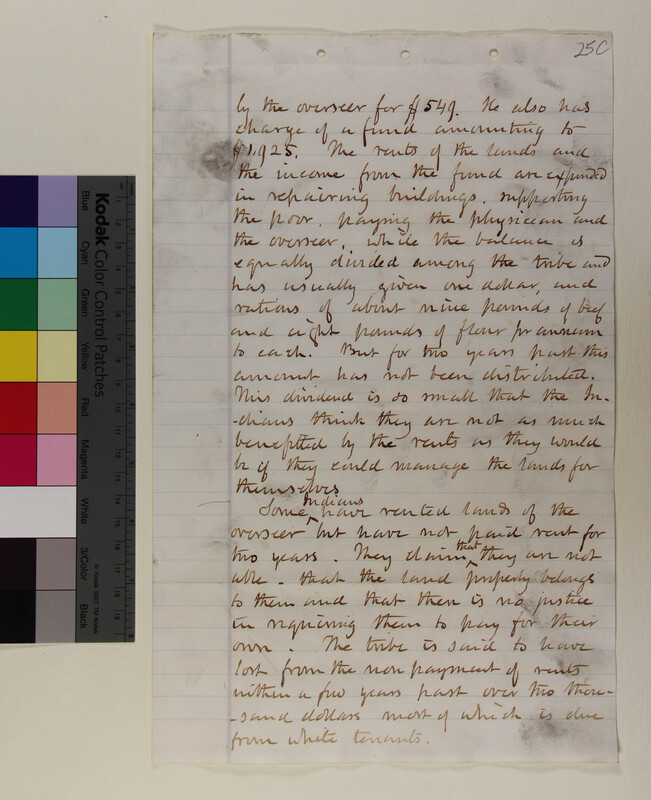 25C
by the overseer for $549. He also has
charge of a fund amounting to
$1,925. The rents of the lands and
the income from the fund are expended
in repairing buildings, supporting
the poor, paying the physicean and
the overseer, while the balance is
equally divided among the tribe and
has usually given one dollar, and
rations of about nine pounds of beef
and eight pounds of flour pr annum
to each. But for two years past this
amount has not been distributed.
This dividend is so small that the In-
-dians think they are not as much
benefitted by the rents as they would
be if they could manage the lands for
themselves
Some Indians have rented lands of the
overseer but have not paid rent for
two years. They claim that they are not
able - that the land property belongs
to them and that there is no justice
in requiring them to pay for their
own. The tribe is said to have
lost from the non payment of rents
within a few years past over two thou-
-sand dollars most of which is due
from white tenants.
Kodak Color Control Patches
Blue
Cyan
Green
Yellow
Red
Magenta
White
3/Color
Black